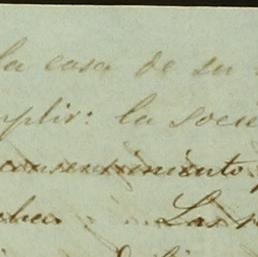 la casa de su
mplir: la socie
consentimiento
Las